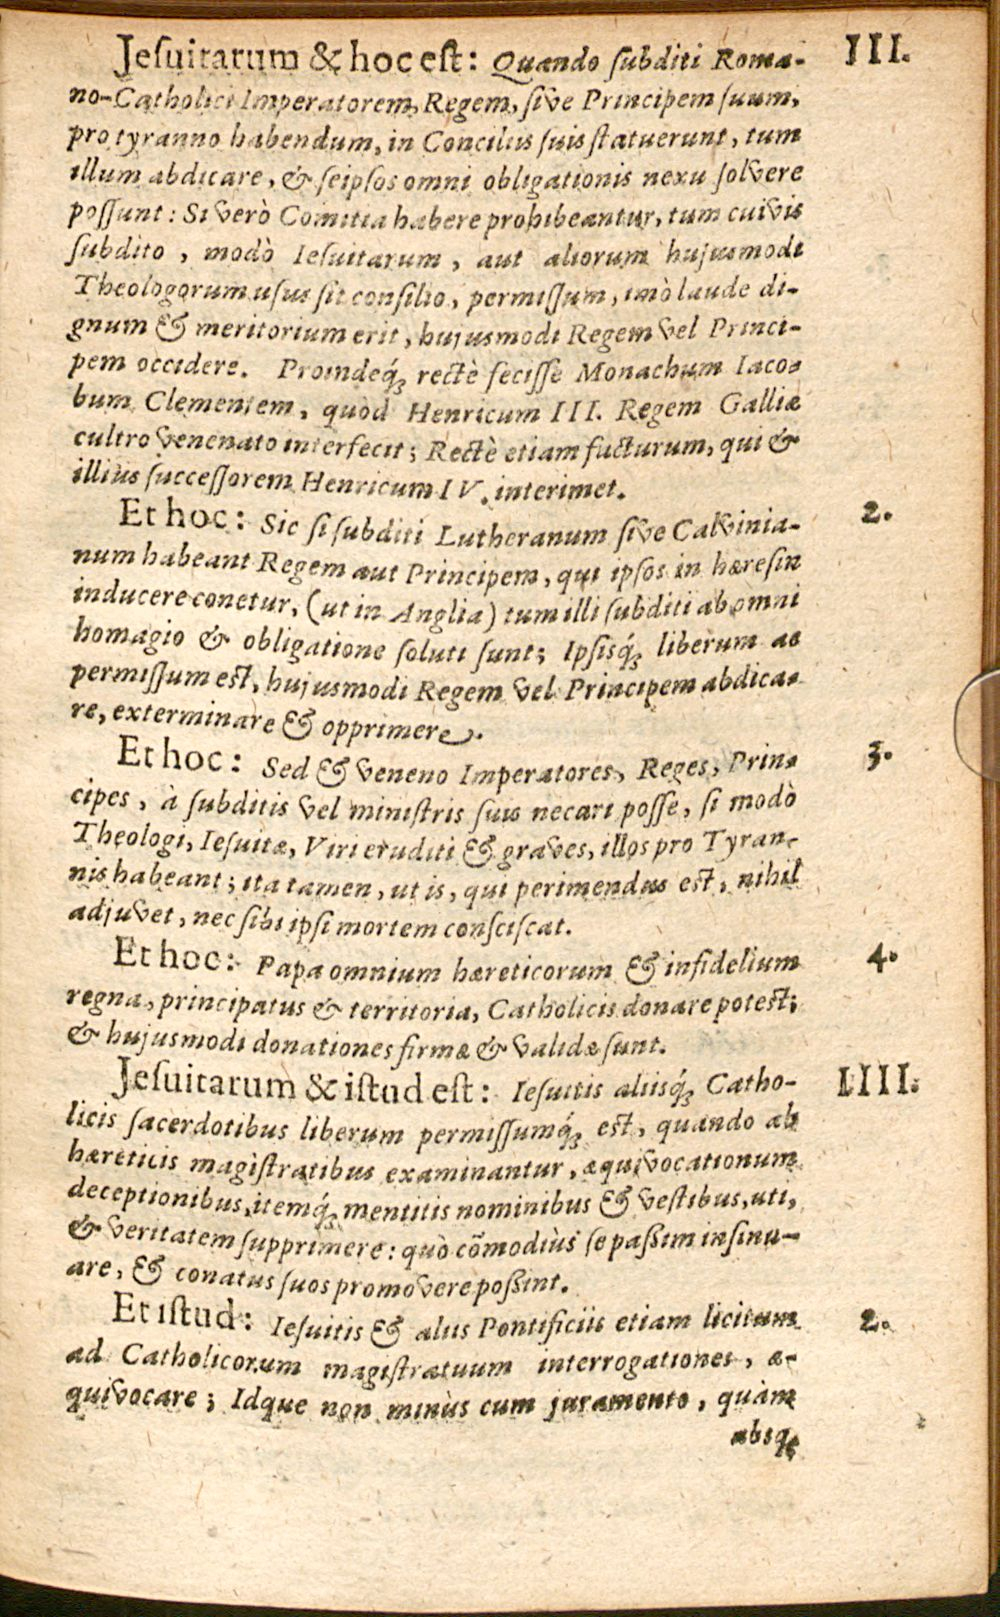 Jeſuitarum & hoc eſt: Quando ſubditi Roma- III.
no-Catholici Imperatorem, Regem, ſive Principem ſuum,
pro tyranno habendum, in Conciliis ſuis ſtatuerunt, tum
illum abdicare, & ſeipſos omni obligationis nexu ſolvere
poſſunt: Si verò Comitia habere prohibeantur, tum cuivis
ſubdito, modò Ieſuitarum, aut aliorum hujusmodi
Theologorum uſus ſit conſilio, permiſſum, imò laude di-
gnum & meritorium erit, hujusmodi Regem vel Princi-
pem occidere. Proindeq́ꝫ rectè feciſſe Monachum Iaco-
bum Clementem, quod Henricum III. Regem Galliæ
cultro venenato interfecit; Rectè etiam facturum, qui &
illius ſucceſſorem Henricum IV. interimet.
Et hoc: Sic ſi ſubditi Lutheranum ſive Calvinia- 2.
num habeant Regem aut Principem, qui ipſos in hæreſin
inducere conetur, (ut in Anglia) tum illi ſubditi ab omni
homagio & obligatione ſoluti ſunt; Ipſisq́ꝫ liberum ac
permiſſum eſt, hujusmodi Regem vel Principem abdica-
re, exterminare & opprimere.
Et hoc: Sed & veneno Imperatores, Reges, Prin- 3.
cipes, à ſubditis vel miniſtris ſuis necari poſſe, ſi modò
Theologi, Ieſuitæ, Viri eruditi & graves, illos pro Tyran-
nis habeant; ita tamen, ut is, qui perimendus eſt, nihil
adjuvet, nec ſibi ipſi mortem conſciſcat.
Et hoc: Papa omnium hæreticorum & infidelium 4.
regna, principatus & territoria, Catholicis donare poteſt;
& hujusmodi donationes firmæ & validæ ſunt.
Jeſuitarum & iſtud eſt: Ieſuitis aliisq́ꝫ Catho- IIII.
licis ſacerdotibus liberum permiſſumq́ꝫ eſt, quando ab
hæreticis magiſtratibus examinantur, æquivocationum
deceptionibus, itemq́ꝫ mentitis nominibus & veſtibus, uti,
& veritatem ſupprimere: quò cõmodiùs ſe paßim inſinu-
are, & conatus ſuos promovere poßint.
Et iſtud: Ieſuitis & aliis Pontificiis etiam licitum 2.
ad Catholicorum magiſtratuum interrogationes, æ-
quivocare; Idque non minùs cum juramento, quàm
absqꝫ